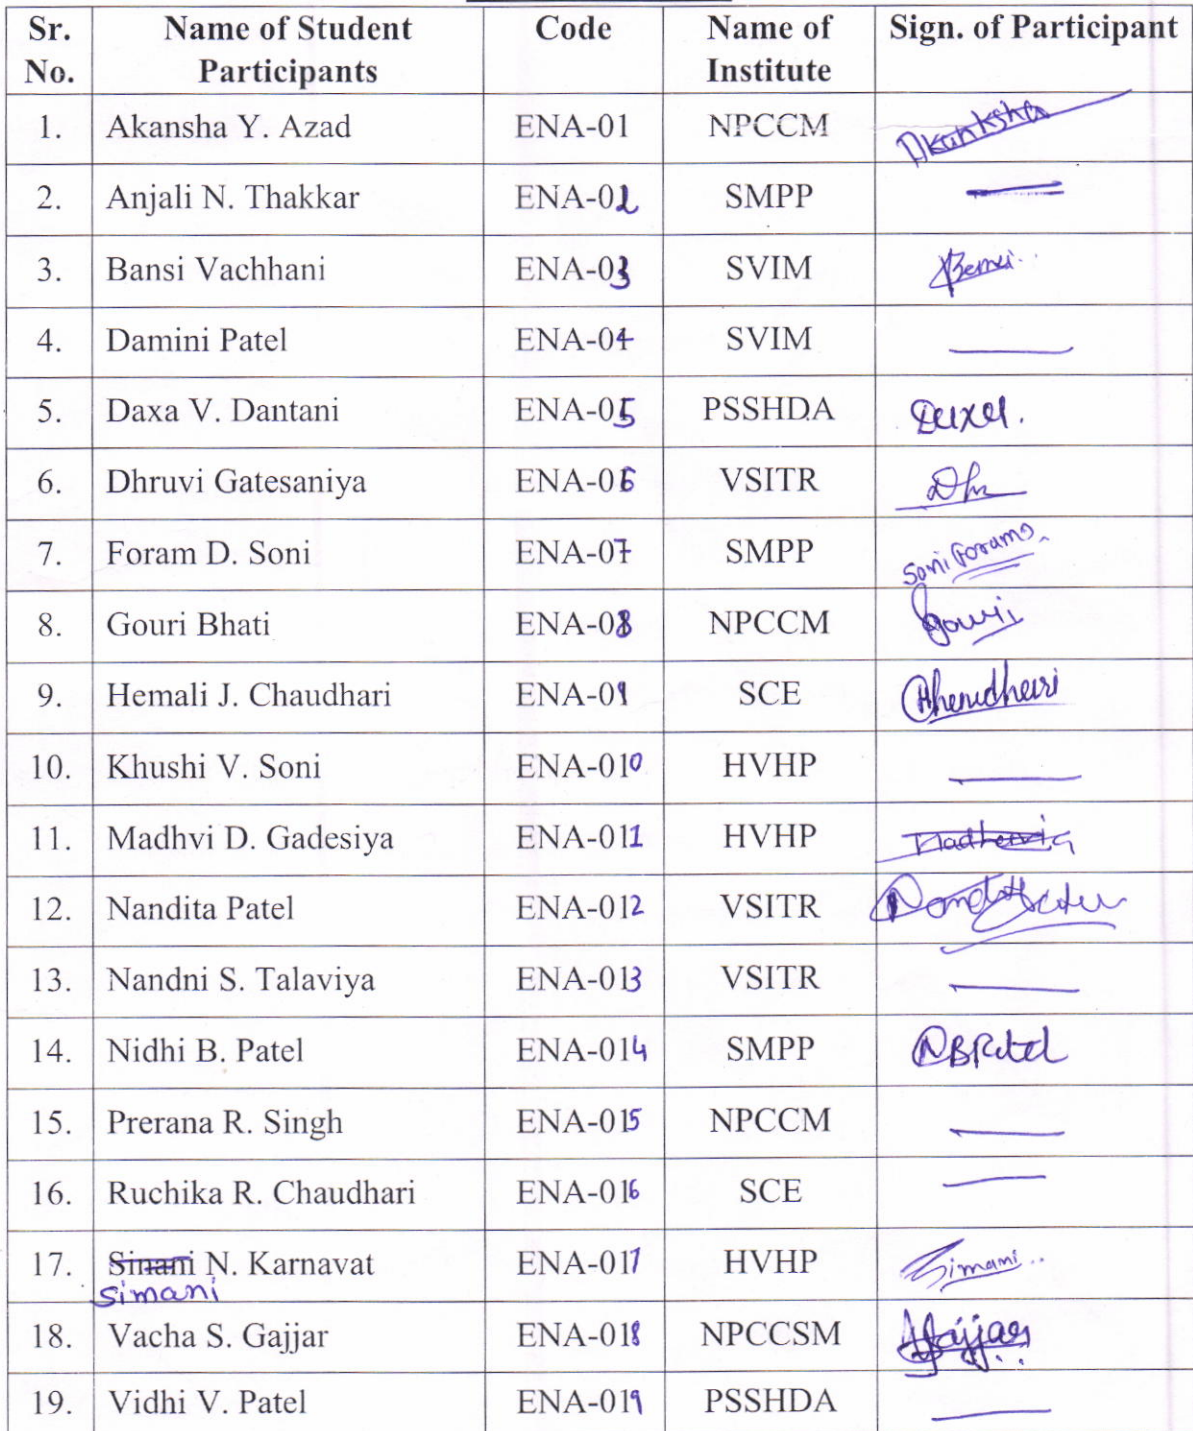 Sr. No. Name of Student Participants Code Name of Institute Sign. of Participant
1. Akansha Y. Azad ENA-01 NPCCM Akanksha
2. Anjali N. Thakkar ENA-02 SMPP
3. Bansi Vachhani ENA-03 SVIM Bansi..
4. Damini Patel ENA-04 SVIM
5. Daxa V. Dantani ENA-05 PSSHDA Daxa.
6. Dhruvi Gatesaniya ENA-06 VSITR Dh
7. Foram D. Soni ENA-07 SMPP Soni Foram
8. Gouri Bhati ENA-08 NPCCM Gouri
9. Hemali J. Chaudhari ENA-09 SCE
10. Khushi V. Soni ENA-010 HVHP
11. Madhvi D. Gadesiya ENA-011 HVHP
12. Nandita Patel ENA-012 VSITR
13. Nandni S. Talaviya ENA-013 VSITR
14. Nidhi B. Patel ENA-014 SMPP NBPatel
15. Prerana R. Singh ENA-015 NPCCM
16. Ruchika R. Chaudhari ENA-016 SCE
17. Sinani N. Karnavat ENA-017 HVHP Simani..
Simani
18. Vacha S. Gajjar ENA-018 NPCCSM Gajjar
19. Vidhi V. Patel ENA-019 PSSHDA